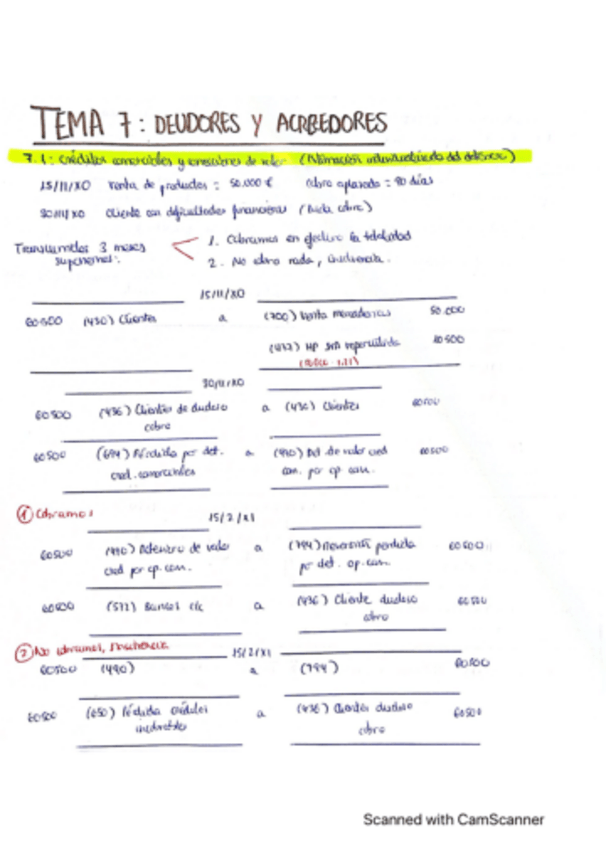 TEMA 7: DEUDORES Y ACREEDORES
7.1: Créditos comerciales y correcciones de valor (Estimación individualizada del deterioro)
15/11/X0 Venta de productos = 50.000 € Cobro aplazado = 90 días
30/11/X0 Cliente con dificultades financieras (duda cobro)
Transcurridos 3 meses 1. Cobramos en efectivo la totalidad
suponemos: 2. No cobro nada, insolvencia.
15/11/X0
60500 (430) Clientes a (700) Venta mercaderías 50.000
(477) HP IVA repercutido 10500
30/11/X0
60500 (436) Clientes de dudoso a (430) Clientes 60500
cobro
60500 (694) Pérdida por det. a (490) Det. de valor cred 60500
cred. comerciales com. por op com.
① Cobramos
15/2/X1
60500 (490) Deterioro de valor a (794) Reversión pérdida 60500
cred por op. com. por det. op. com.
60500 (572) Bancos c/c a (436) Cliente dudoso 60500
cobro
② No cobramos, insolvencia 15/2/X1
60500 (490) a (794) 60500
60500 (650) Pérdida créditos a (436) Clientes dudoso 60500
incobrables cobro
Scanned with CamScanner